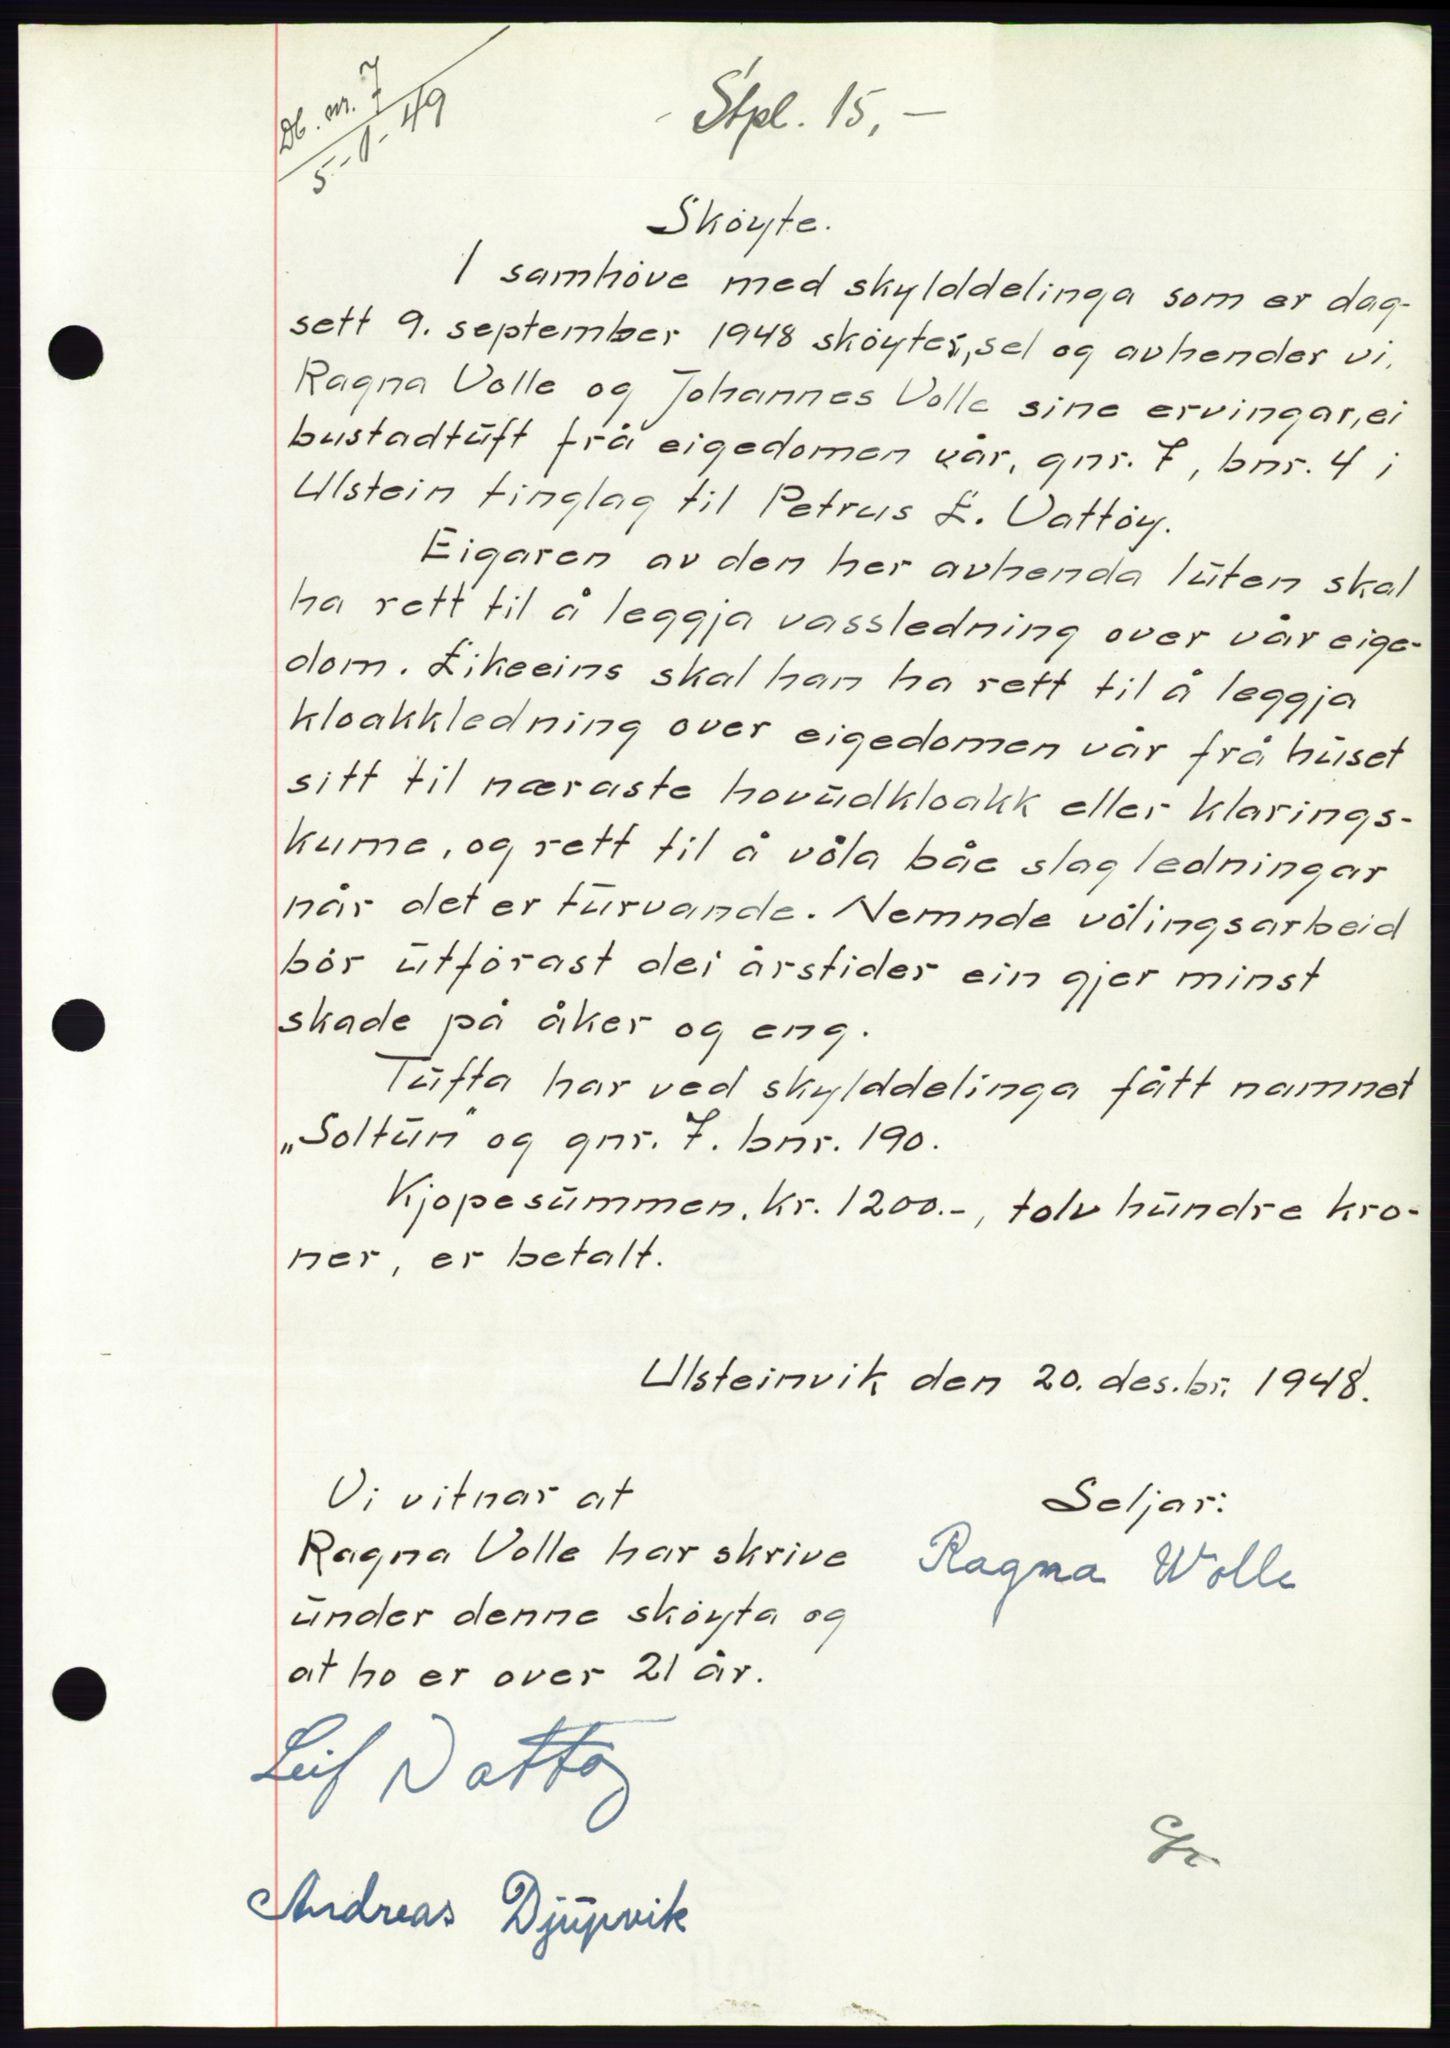 Db. nr. 7
5-1-49
Stpl. 15,-
Sköyte.
I samhöve med skylddelinga som er dag-
sett 9. september 1948 sköyter, sel og avhender vi,
Ragna Volle og Johannes Volle sine ervingar, ei
bustadtuft frå eigedomen vår, gnr. 7, bnr. 4 i
Ulstein tinglag til Petrus L. Vattöy.
Eigaren av den her avhenda luten skal
ha rett til å leggja vassledning over vår eige-
dom. Likeeins skal han ha rett til å leggja
kloakkledning over eigedomen vår frå huset
sitt til næraste hovudkloakk eller klarings-
kume, og rett til å völa båe slag ledningar
når det er turvande. Nemnde völingsarbeid
bör utförast dei årstider ein gjer minst
skade på åker og eng.
Tufta har ved skylddelinga fått namnet
„Soltun" og gnr. 7. bnr. 190.
Kjöpesummen, kr. 1200.-, tolv hundre kro-
ner, er betalt.
Ulsteinvik den 20. des.br. 1948.
Vi vitnar at
Ragna Volle har skrive
under denne sköyta og
at ho er over 21 år.
Seljar:
Ragna Wolle
Leif Vattöy
Andreas Djupvik